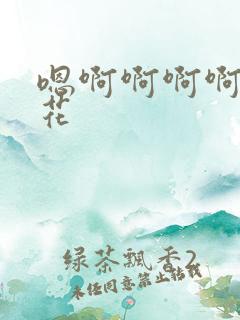 嗯啊啊啊啊
花
绿茶飘香2
未经同意禁止转载